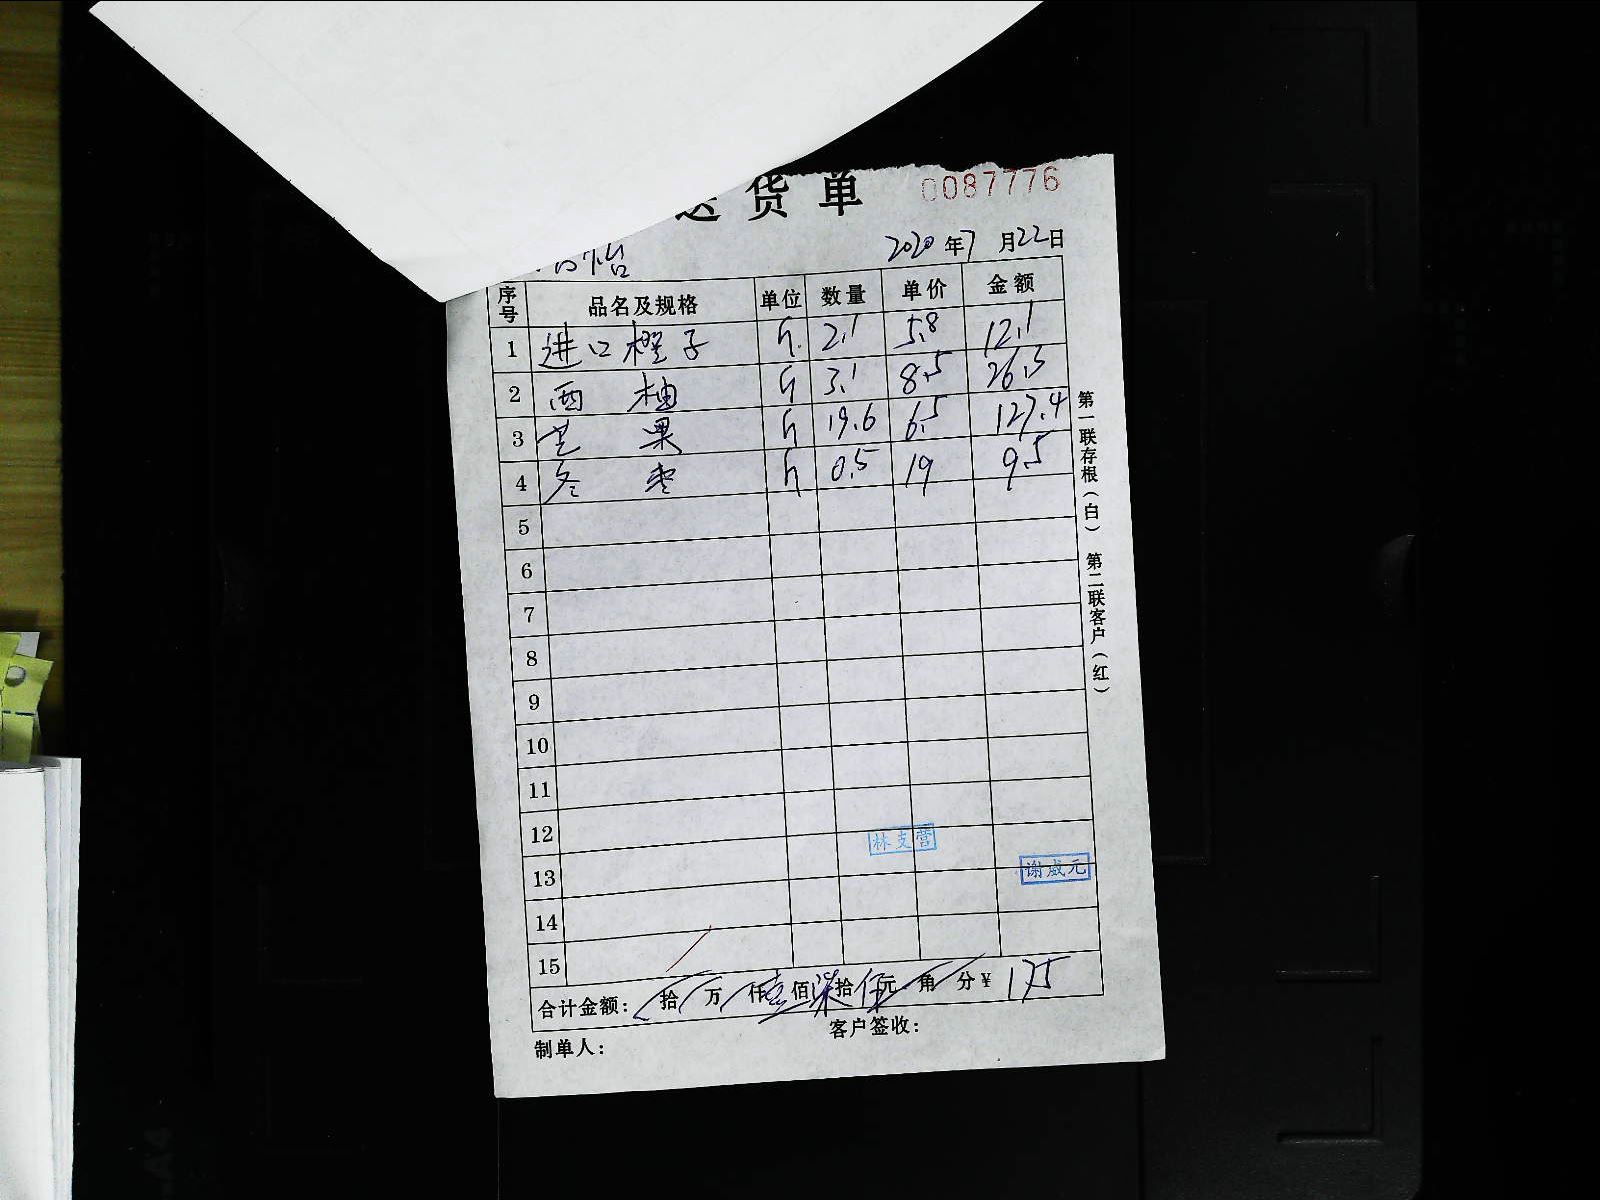 送货单 0087776
怡 2020年7月22日
序号 品名及规格 单位 数量 单价 金额
1 进口橙子 斤 2.1 5.8 12.1
2 西柚 斤 3.1 8.5 26.3
3 芒果 斤 19.6 6.5 127.4
4 冬枣 斤 0.5 19 9.5
5
6
7
8
9
10
11
12
林支营
13
谢威元
14
15
合计金额: 拾 万 仟壹佰柒拾伍元 角 分¥ 175
客户签收:
制单人:
第一联存根(白) 第二联客户(红)